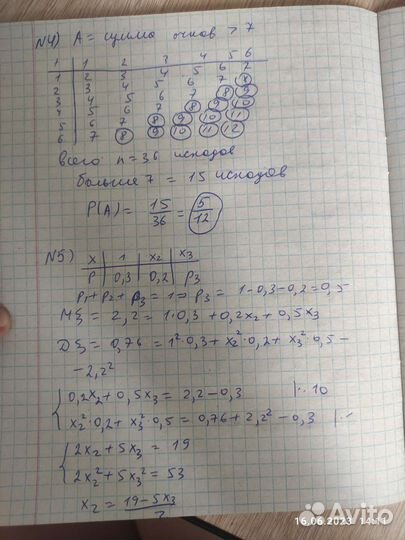 №4) A = сумма очков > 7
+ 1 2 3 4 5 6
1 2 3 4 5 6 7
2 3 4 5 6 7 8
3 4 5 6 7 8 9
4 5 6 7 8 9 10
5 6 7 8 9 10 11
6 7 8 9 10 11 12
всего n = 36 исходов
больше 7 = 15 исходов
P(A) = 15/36 = 5/12
№5) x 1 x₂ x₃
P 0,3 0,2 p₃
p₁ + p₂ + p₃ = 1 => p₃ = 1-0,3-0,2=0,5
Mξ = 2,2 = 1·0,3 + 0,2x₂ + 0,5x₃
Dξ = 0,76 = 1²·0,3 + x₂²·0,2 + x₃²·0,5 -
- 2,2²
0,2x₂ + 0,5x₃ = 2,2 - 0,3 |·10
x₂²·0,2 + x₃²·0,5 = 0,76 + 2,2² - 0,3 |·
2x₂ + 5x₃ = 19
2x₂² + 5x₃² = 53
x₂ = 19 - 5x₃
16.06.2023 14:11
Avito